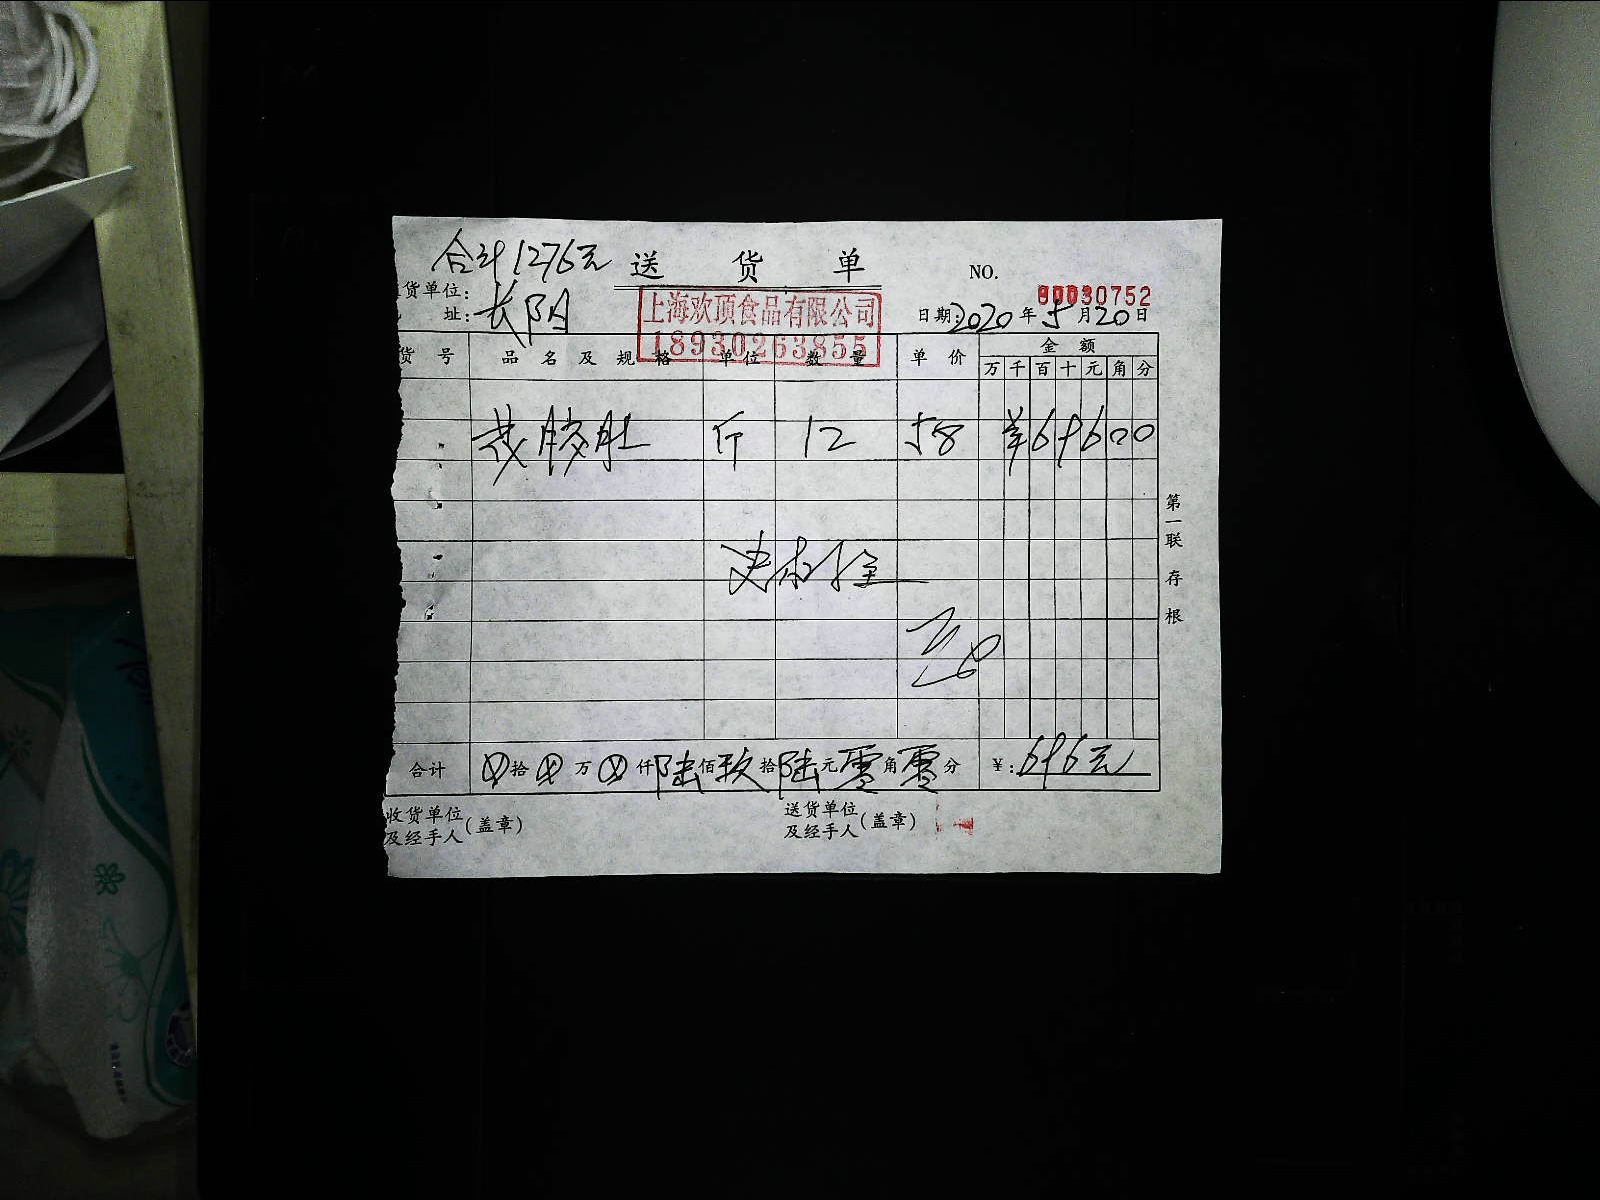 合计1276元
送 货 单
NO.
00030752
货单位:
址: 长阳
上海欢顶食品有限公司
18930263855
日期: 2020 年 5 月 20 日
货 号 品 名 及 规 格 单位 数 量 单 价 金 额
万 千 百 十 元 角 分
斤 12 58 ¥ 6 9 6 0 0
第一联 存根
合计 ⊗ 拾 ⊗ 万 ⊗ 仟 陆 佰 玖 拾 陆 元 零 角 零 分 ¥: 696元
收货单位
及经手人 (盖章)
送货单位
及经手人 (盖章)